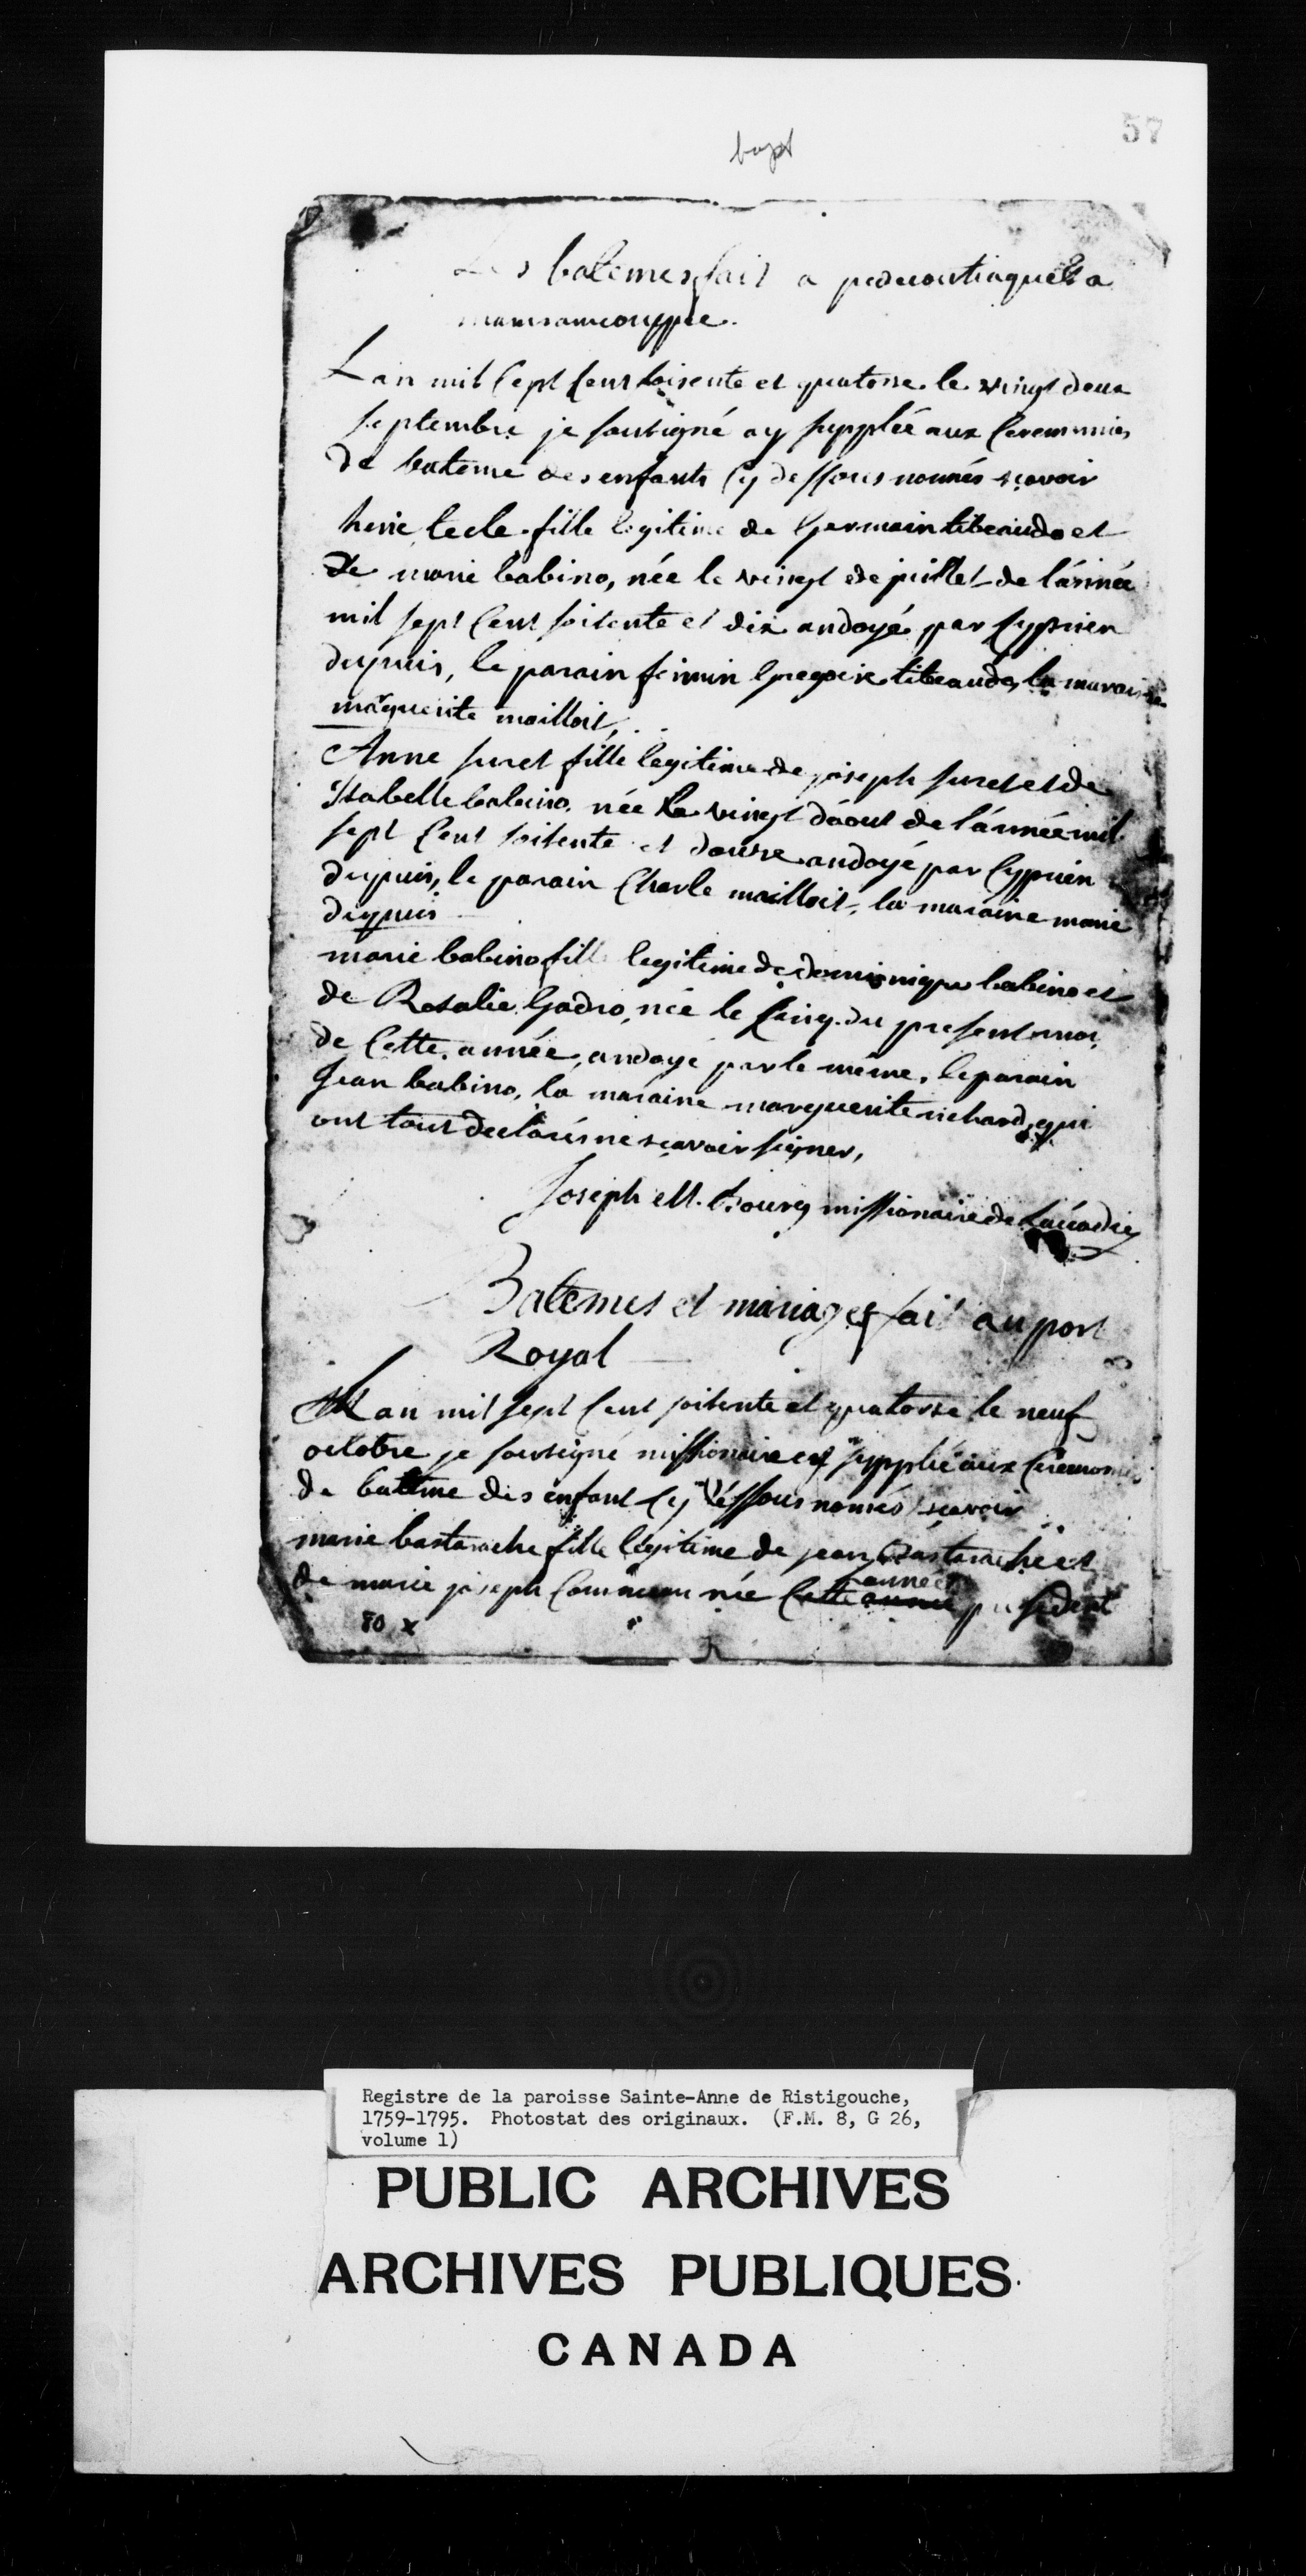 57
bapt
Les batemes fait a pedcoutiaque et a
mamramcouppée.
Lan mil sept cent soisente et quatorse le vingt deux
septembre je sousigné ay supplée aux ceremonies
de bateme des enfants cy dessous nommés sçavoir
tecle fille legitime de germain tibeaudo et
de marie babino, née le vingt de juillet de l'année
mil sept cent soisente et dix andoyé par cyprien
dupuis, le parain firmin gregoire tibeaudo, la maraine
marguerite mailloit,
Anne suret fille legitime de joseph suret et de
Isabelle babino, née le vingt d'aout de l'année mil
sept cent soisente et douse andoyé par cyprien
dupuis, le parain Charle mailloit, la maraine marie
dupuis
marie babino fille legitime de dominique babino et
de Rosalie godro, née le cinq du present moi
de cette année, andoyé par le même, le parain
jean babino, la maraine marguerite richard, qui
ont tout declarés ne sçavoir signer,
Joseph M. Bourg missionaire de Lacadie
Batemes et mariages fait au port
Royal
Lan mil sept cent soisente et quatorse le neuf
octobre je sousigné missionaire ay supplié aux ceremonies
de bateme des enfant cy dessous només sçavoir
marie bastarache fille légitime de jean Bastarache et
année
de marie joseph Commeau née Cette annee presedent
80 x
Registre de la paroisse Sainte-Anne de Ristigouche,
1759-1795. Photostat des originaux. (F.M. 8, G 26,
volume 1)
PUBLIC ARCHIVES
ARCHIVES PUBLIQUES
CANADA